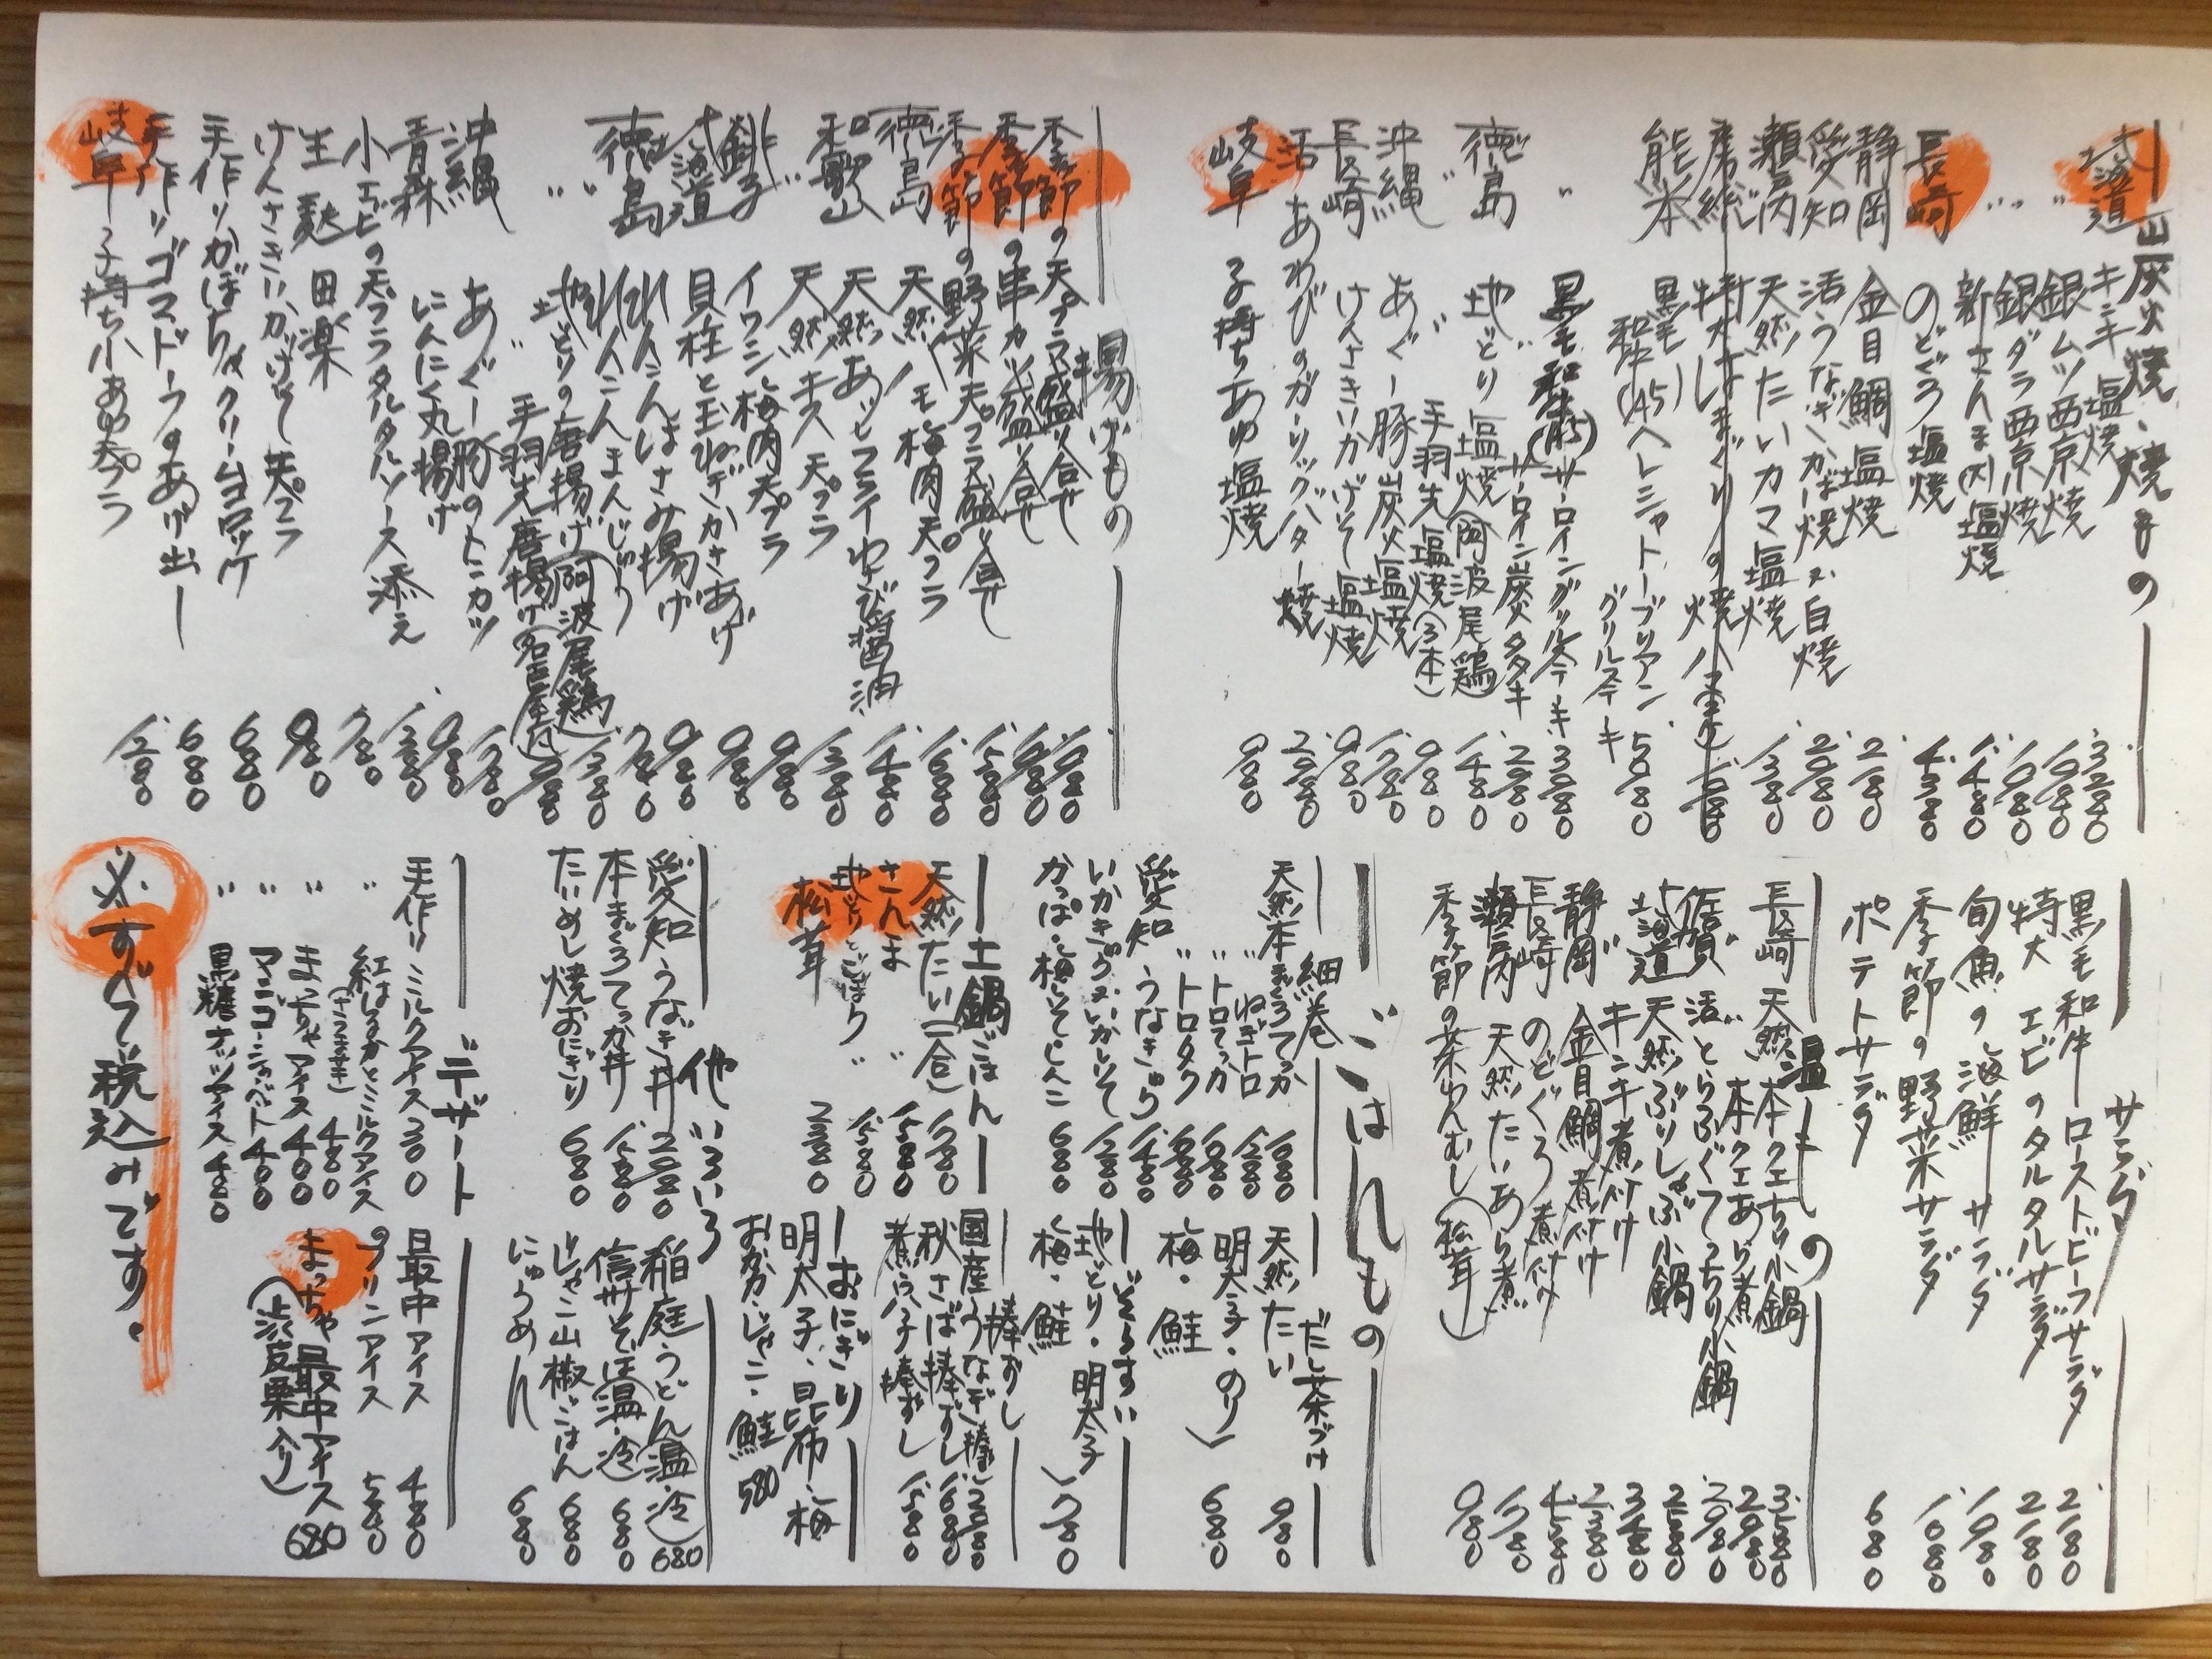 炭火焼・焼きもの
北海道 キンキ塩焼 3280
〃 銀ムツ西京焼 1980
〃 銀ダラ西京焼 1980
〃 新さんま 塩焼 1480
長崎 のどぐろ塩焼 4380
静岡 金目鯛塩焼 2180
愛知 活うなぎかば焼又は白焼 2980
瀬戸内 天然たいカマ塩焼 1380
特大はまぐりの焼
熊本 黒毛和牛(A5)ヘレシャトーブリアングリルステーキ 5080
〃 黒毛和牛(A5)サーロイングリルステーキ 3080
サーロイン炭火タタキ 2980
徳島 地どり塩焼(阿波尾鶏) 1480
〃 手羽先塩焼(3本) 980
沖縄 あぐー豚炭火塩焼 1780
長崎 けんさきいかげそ塩焼 980
活あわびのガーリックバター焼 2980
岐阜 子持ちあゆ塩焼 980
揚げもの
季節の天プラ盛り合せ 1980
季節の串カツ盛り合せ 1980
季節の野菜天プラ盛り合せ 1580
徳島 天然ハモ梅肉天プラ 1680
和歌山 天然あじフライわさび醤油 1480
〃 天然キス天プラ 1380
銚子 イワシ梅肉天プラ 980
北海道 貝柱と玉ねぎかきあげ 980
徳島 れんこんはさみ揚げ 980
〃 れんこんまんじゅう 780
〃 地どりの唐揚げ(阿波尾鶏) 1380
〃 手羽先唐揚げ(名古屋風) 980
沖縄 あぐー豚のトンカツ 1780
青森 にんにく丸揚げ 980
小エビの天プラタルタルソース添え 1380
生麩田楽 780
けんさきいかげそ天プラ 980
手作りかぼちゃクリームコロッケ 680
手作りゴマドーフのあげ出し 680
岐阜 子持ち小あゆ天プラ 1280
サラダ
黒毛和牛ローストビーフサラダ 2180
特大エビのタルタルサラダ 2180
旬魚の海鮮サラダ 1980
季節の野菜サラダ 1080
ポテトサラダ 680
温もの
長崎 天然本クエちり小鍋 3580
〃 本クエあら煮 2980
佐賀 活とらふぐてっちり小鍋 2980
〃 天然ぶりしゃぶ小鍋 2580
北海道 キンキ煮付け 3480
静岡 金目鯛煮付け 2380
長崎 のどぐろ煮付け 4580
瀬戸内 天然たいあら煮 1780
季節の茶わんむし(松茸) 980
ごはんもの
細巻
天然本まぐろてっか 1680
〃 ねぎトロ 1280
〃 トロてっか 1680
〃 トロタク 1680
愛知 うなきゅう 1480
いかきゅう又いかしそ 1280
かっぱ・梅しそ・しんこ 680
だし茶づけ
天然たい 980
明太子・のり
梅・鮭
680
ぞうすい
地どり・明太子
梅・鮭
780
土鍋ごはん
天然たい(一合) 1780
さんま 〃 1580
地どりとごぼう 〃 1580
松茸 2380
棒ずし
国産うなぎ棒ずし 2980
秋さば棒ずし 1680
煮穴子棒ずし 1580
おにぎり
明太子、昆布、梅
おかか・じゃこ・鮭 580
他いろいろ
愛知 うなぎ丼 2980
本まぐろてっか丼 1580
たいめし焼おにぎり 680
稲庭うどん(温・冷) 680
信州そば(温・冷) 680
じゃこ山椒ごはん 680
にゅうめん 680
デザート
手作りミルクアイス 300
〃 紅はるかとミルクアイス(さつま芋) 480
〃 まっちゃアイス 400
〃 マンゴーシャーベット 400
〃 黒糖ナッツアイス 480
最中アイス 480
プリンアイス 580
まっちゃ最中アイス(渋皮栗入り) 680
※すべて税込みです。